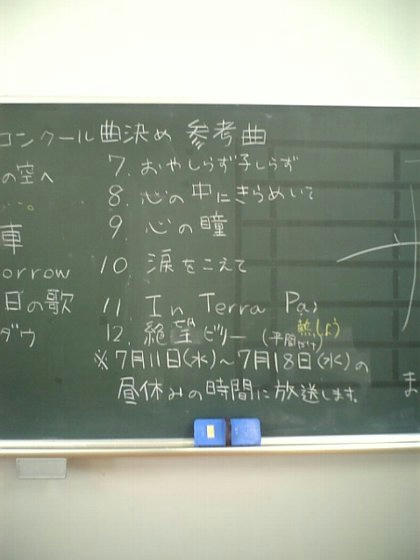 コンクール曲決め 参考曲
の空へ 7. おやしらず子しらず
…。 8. 心の中にきらめいて
車 9. 心の瞳
orrow 10. 涙をこえて
目の歌 11 In Terra Pax
ダウ 12. 絶望ビリー (平間だけ) 熱しよう
※7月11日(水)~7月18日(水)の
昼休みの時間に放送します。
ま